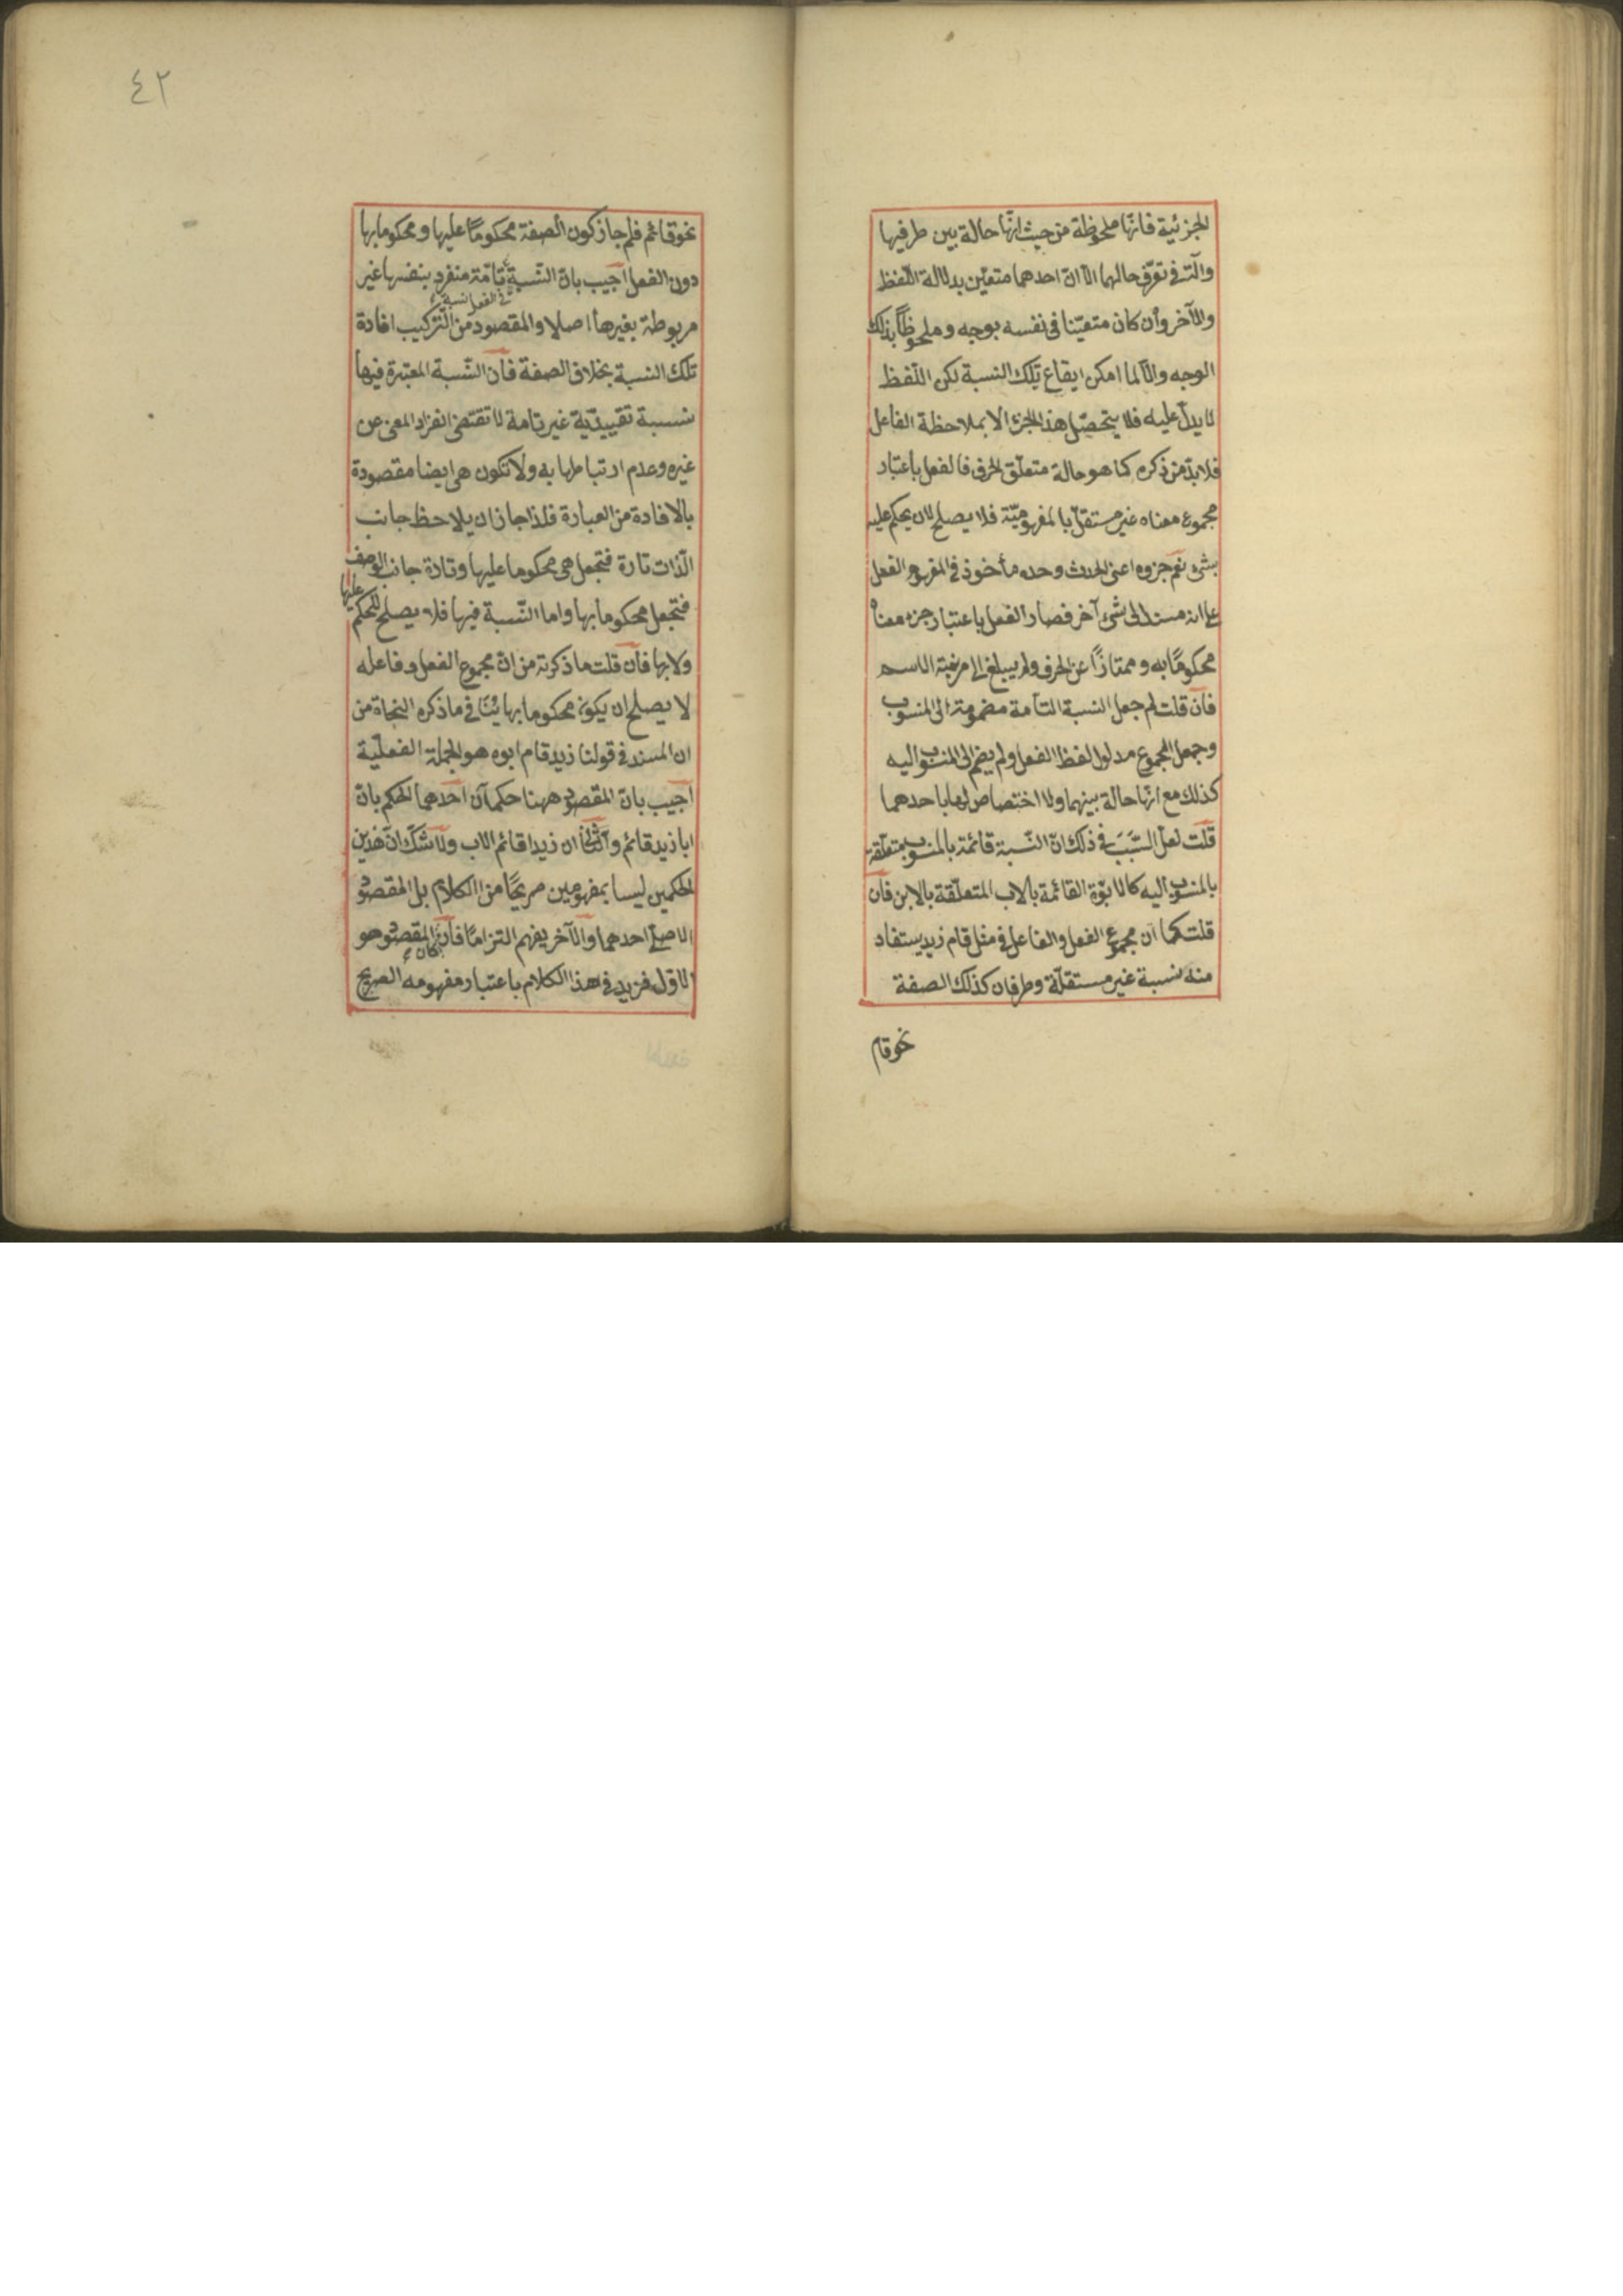 الجزئية فانها ملحوظة من حيث انها حالة بين طرفيها
وآلة في تعرّف حالهما الا ان احدهما متعيّن بدلالة اللفظ
والآخر وان كان متعيّنا في نفسه بوجه وملحوظاً بذلك
الوجه والا لما امكن ايقاع تلك النسبة لكن اللفظ
لا يدلّ عليه فلا يتحصّل هذا الجزء الا بملاحظة الفاعل
فلا بدّ من ذكره كما هو حالة متعلّق الحرف فالفعل باعتبار
مجموع معناه غير مستقلّ بالمفهوميّة فلا يصلح لان يحكم عليه
بشئ نعم جزوه اعنى الحدث وحده مأخوذ في المفهوم الفعل
على انه مسند الى شئ آخر فصار الفعل باعتبار جزء معناه
محكومًا به وممتازًا عن الحرف ولم يبلغ الى مرتبة الاسم
فان قلت لم جعل النسبة التامة مضمومة الى المنسوب
وجعل المجموع مدلول لفظ الفعل ولم يضم الى المنسوب اليه
كذلك مع انها حالة بينهما ولا اختصاص لها باحدهما
قلت لعل السَّبَبَ في ذلك انّ النّسبة قائمة بالمنسوب متعلّقة
بالمنسوب اليه كالابوّة القائمة بالاب المتعلّقة بالابن فان
قلت كما ان مجموع الفعل والفاعل في مثل قام زيد يستفاد
منه نسبة غير مستقلّة وطرفان كذلك الصفة
نحو قام
٤٢
نحو قائم فلم جاز كون الصفة محكومًا عليها ومحكوما بها
دون الفعل اجيب بانّ النّسبة تامّة منفرد بنفسها غير
في الفعل نسبة
مربوطة بغيرها اصلا والمقصود من التّركيب افادة
تلك النسبة بخلاف الصفة فان النّسبة المعتبرة فيها
نسبة تقييديّة غير تامة لا تقتضى انفراد المعنى عن
غيره وعدم ارتباطها به ولا تكون هى ايضا مقصودة
بالافادة من العبارة فلذا جاز ان يلاحظ جانب
الذّات تارة فتجعل هى محكوما عليها وتارة جانب الوصف
فتجعل محكوما بها واما النّسبة فيها فلا يصلح للحكم عليها
ولا بها فان قلت ما ذكرته من انّ مجموع الفعل وفاعله
لا يصلح ان يكون محكوما بها ينافي ما ذكره النحاة من
ان المسند في قولنا زيد قام ابوه هو الجملة الفعليّة
اجيب بانّ المقصود ههنا حكمان احدهما الحكم بانّ
ابا زيد قائم والثاني ان زيدا قائم الاب ولا شكّ انّ هذين
الحكمين ليسا بمفهومين صريحًا من الكلام بل المقصود
الاصلى احدهما والآخر يفهم التزامًا فان كان المقصود هو
الاوّل فزيد في هذا الكلام باعتبار مفهومه الصريح